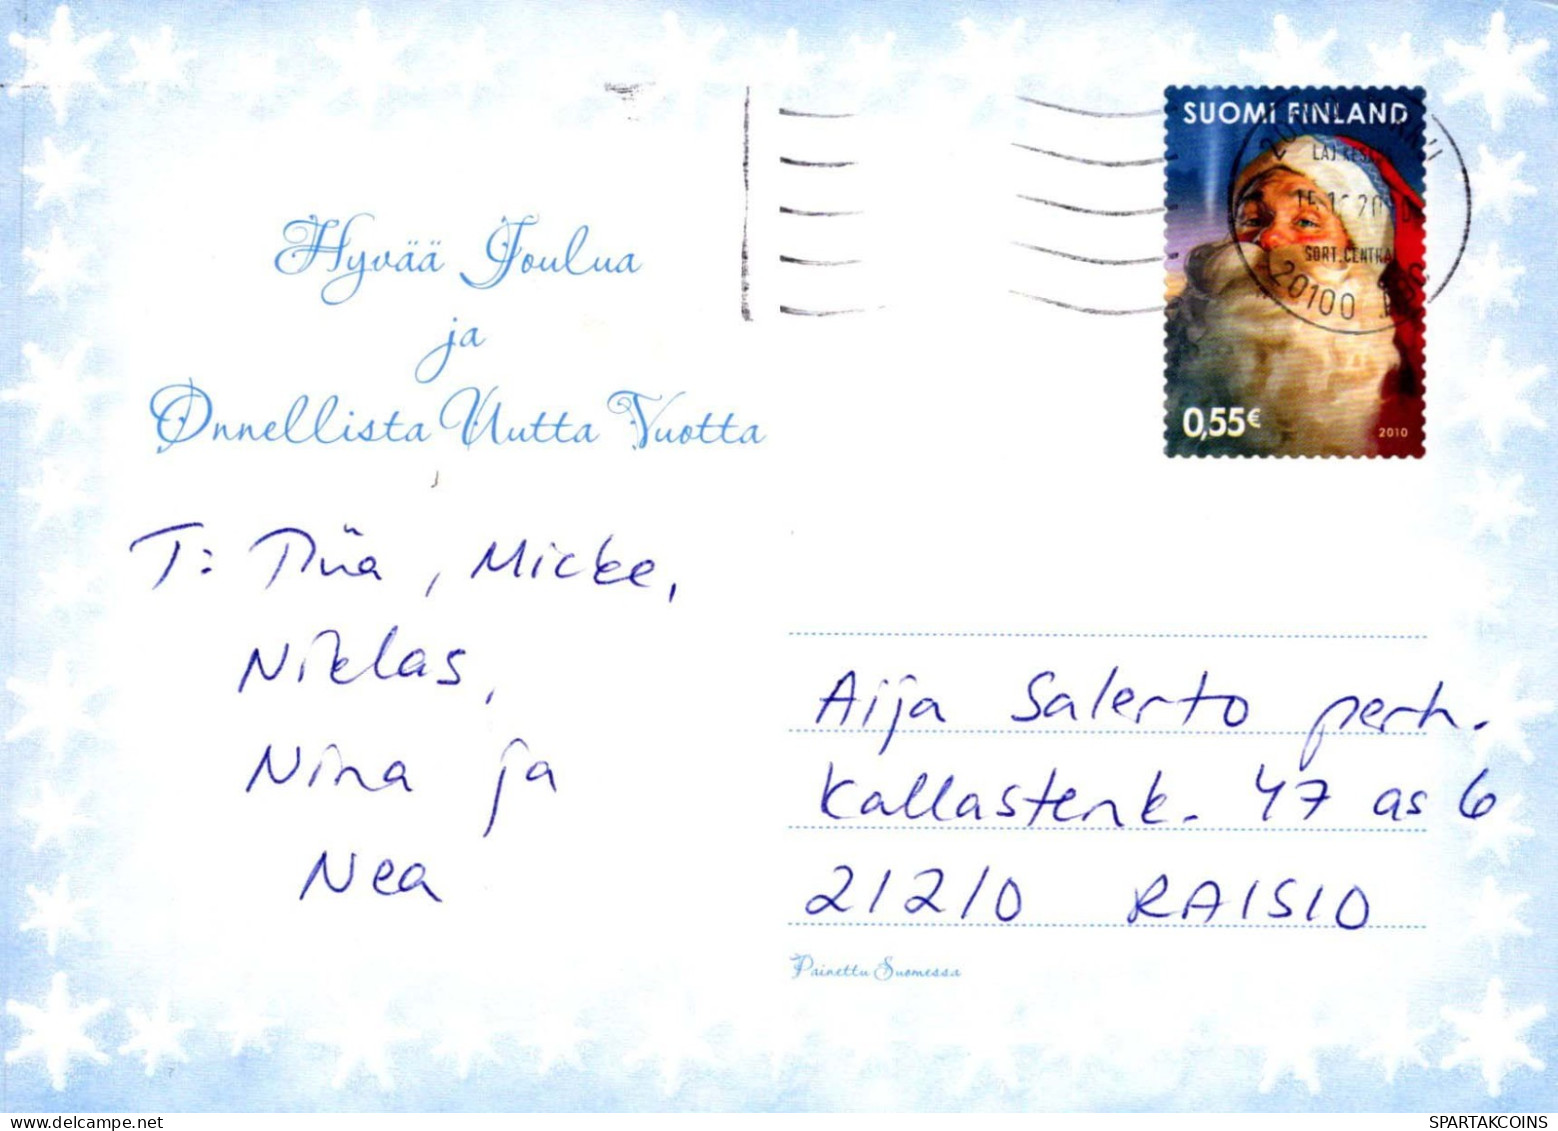 SUOMI FINLAND
LAJ.KESK
SORT.CENTRA
20100
0,55€
2010
Hyvää Joulua
ja
Onnellista Uutta Vuotta
T: Tiia, Micke,
Niklas,
Nina ja
Nea
Aija Salerto perh.
Kallastenk. 47 as 6
21210 RAISIO
Painettu Suomessa
SPARTAKCOINS